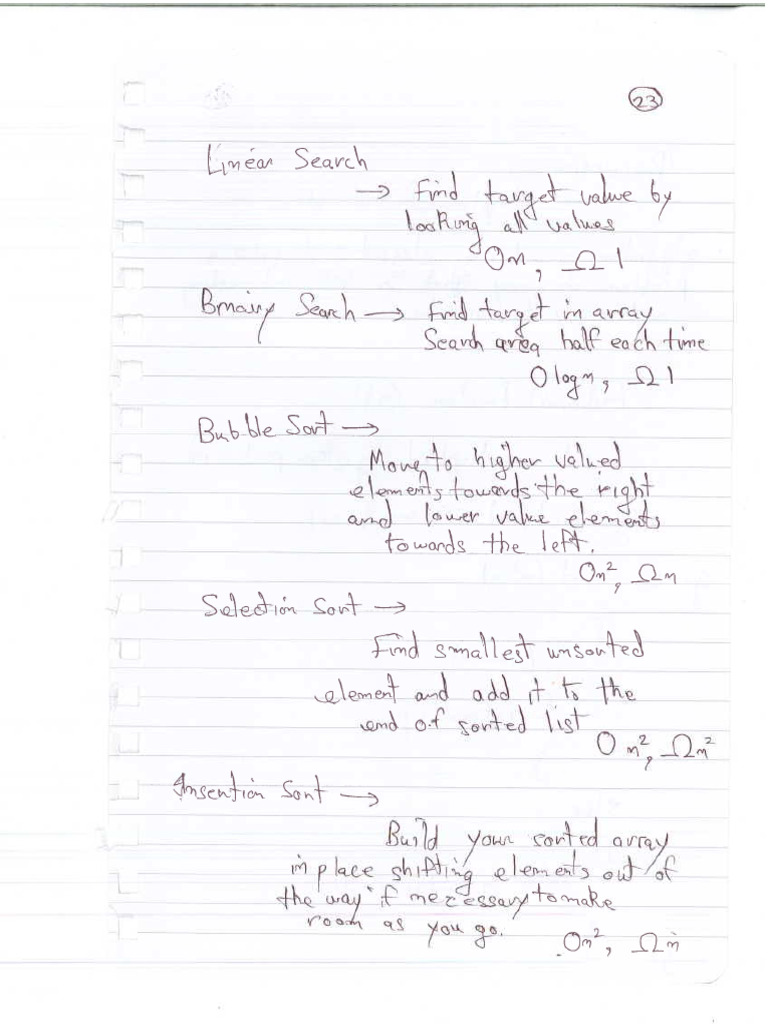 23
Linear Search
→ Find target value by
looking all values
On, Ω 1
Binary Search → Find target in array
Search area half each time
O logn, Ω 1
Bubble Sort →
Move to higher valued
elements towards the right
and lower value elements
towards the left.
On², Ωn
Selection Sort →
Find smallest unsorted
element and add it to the
end of sorted list
O n², Ωn²
Insertion Sort →
Build your sorted array
in place shifting elements out of
the way if necessary to make
room as you go.
On², Ωn